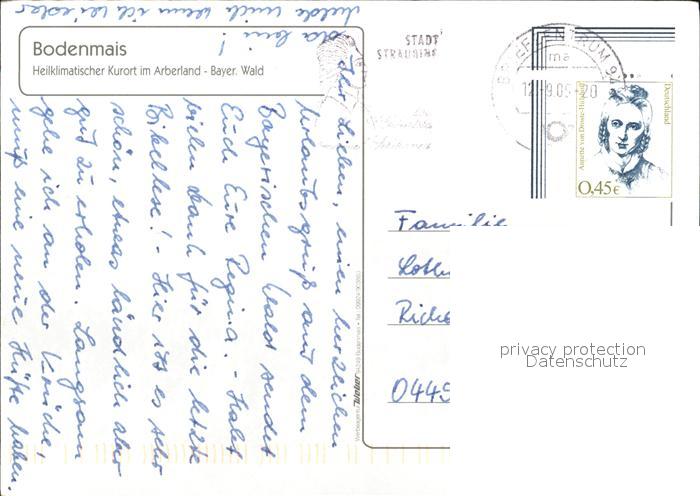 Bodenmais
Heilklimatischer Kurort im Arberland - Bayer. Wald
STADT
STRAUBING
BRIEFZENTRUM 94
ma
Deutschland
Annette von Droste-Hülshoff
0,45€
Ihr Lieben, einen herzlichen
Urlaubsgruß aus dem
Bayerischen Wald sendet
Euch Eure Regina. - Habt
vielen Dank für die letzte
Bibellese! - Hier ist es sehr
schön, etwas ländlich aber
gut zu erholen. Langsam
gehe ich an der Krücke,
muß eine neue Hüfte haben.
Melde mich wenn ich wieder
da bin!
Familie
0449
Werbeagentur Weber 94249 Bodenmais
privacy protection
Datenschutz